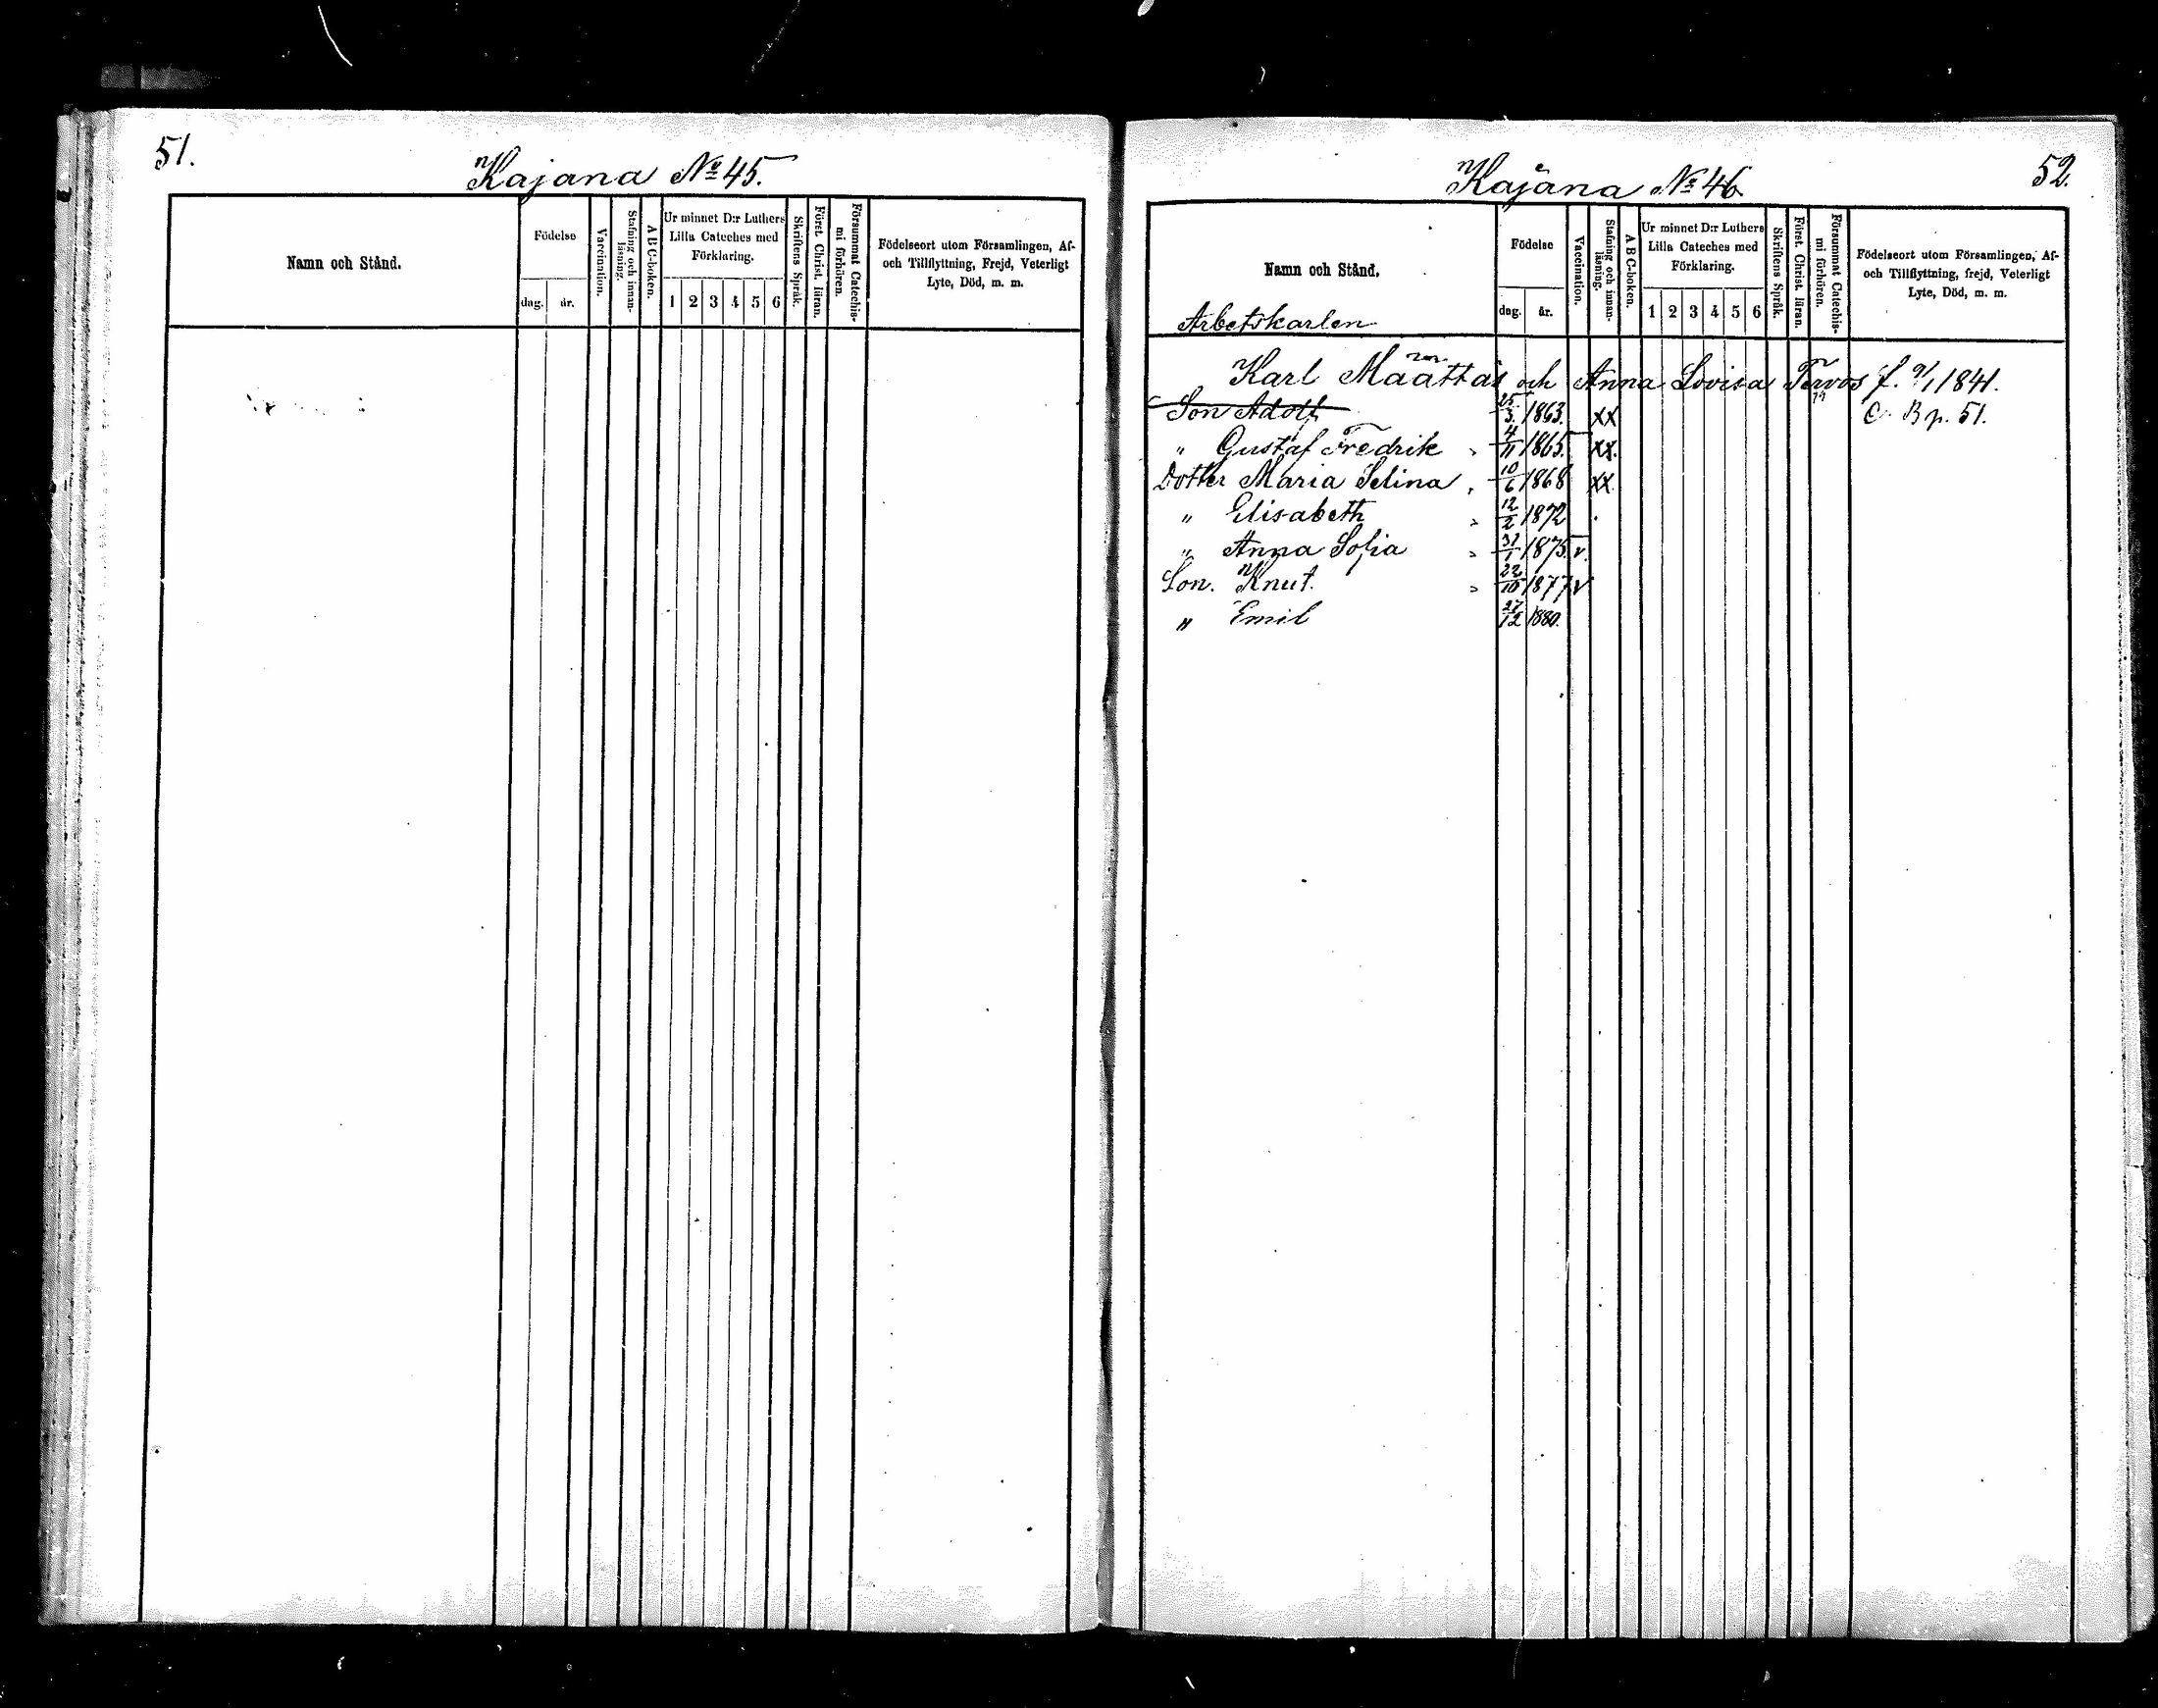 51.
Kajana No 45.
Namn och Stånd.
Födelse
dag. år.
Vaccination.
Stafning och innan-
läsning.
A B C-boken.
Ur minnet D:r Luthers
Lilla Cateches med
Förklaring.
1 2 3 4 5 6
Skriftens Språk.
Först. Christ. läran.
Försummat Catechis-
mi förhören.
Födelseort utom Församlingen, Af-
och Tillflyttning, Frejd, Veterligt
Lyte, Död, m. m.
52.
Kajana No 46
Namn och Stånd.
Födelse
dag. år.
Vaccination.
Stafning och innan-
läsning.
A B C-boken.
Ur minnet D:r Luthers
Lilla Cateches med
Förklaring.
1 2 3 4 5 6
Skriftens Språk.
Först. Christ. läran.
Försummat Catechis-
mi förhören.
Födelseort utom Församlingen, Af-
och Tillflyttning, frejd, Veterligt
Lyte, Död, m. m.
Arbetskarlen
Karl Määttäs och Anna Lovisa Tervos f. 1841.
Son Adolf 25/3. 1863. XX C. B p. 51.
" Gustaf Fredrik " 4/11 1865. XX.
Dotter Maria Selina " 10/6 1868 XX.
" Elisabeth " 12/2 1872
" Anna Sofia " 31/1 1875. v.
Son. Knut. " 22/10 1877 v
" Emil 27/12 1880.